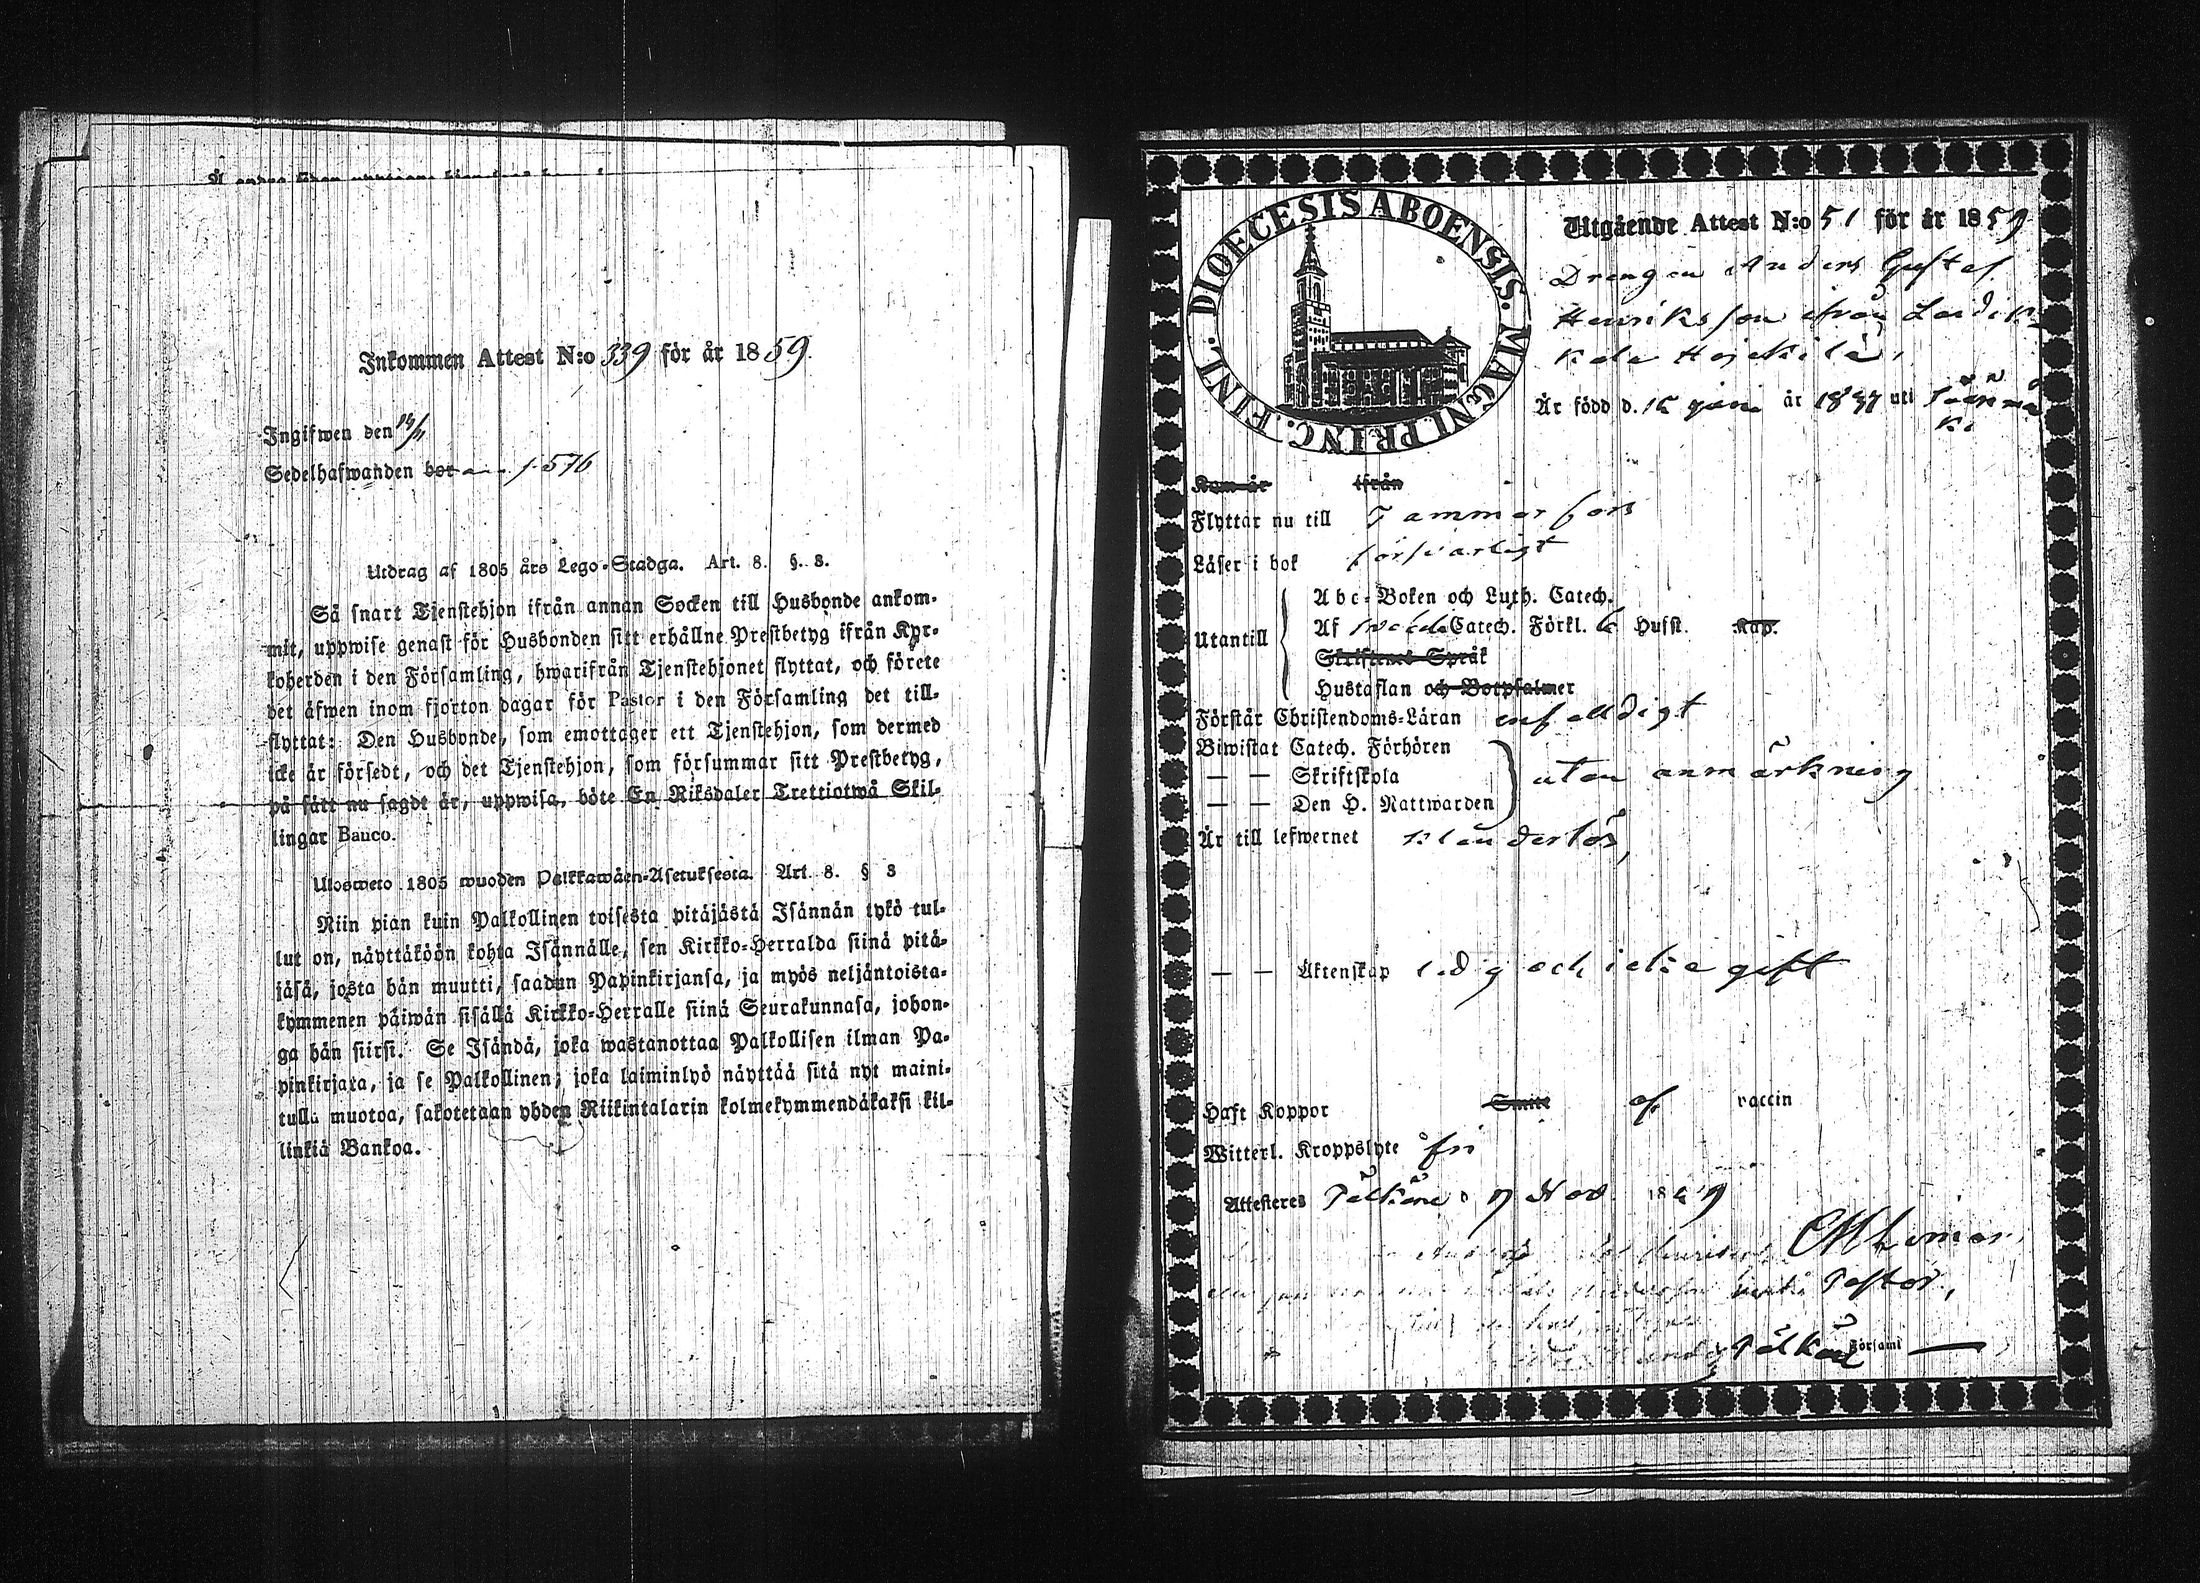 Inkommen Attest N:o 339 för år 1859.
Ingifwen den 14/11
Sedelhafwanden bor p. 576
Utdrag af 1805 års Lego-Stadga. Art. 8. §. 3.
Så snart Tjenstehjon ifrån annan Socken till Husbonde ankom-
mit, uppwise genast för Husbonden sitt erhållne Prestbetyg ifrån Kyr-
koherden i den Församling, hwarifrån Tjenstehjonet flyttat, och förete
det äfwen inom fjorton dagar för Pastor i den Församling det till-
flyttat: Den Husbonde, som emottager ett Tjenstehjon, som dermed
icke är försedt, och det Tjenstehjon, som försummar sitt Prestbetyg,
på sätt nu sagdt är, uppwisa, böte En Riksdaler Trettiotwå Skil-
lingar Banco.
Ulosweto 1805 wuoden Palkkawäen-Asetuksesta. Art. 8. § 3
Niin pian kuin Palkollinen toisesta pitäjästä Isännän tykö tul-
lut on, näyttäköön kohta Isännälle, sen Kirkko-Herralda siinä pitä-
jäsä, josta hän muutti, saadun Papinkirjansa, ja myös neljäntoista-
kymmenen päiwän sisällä Kirkko-Herralle siinä Seurakunnasa, johon-
ga hän siirsi. Se Isändä, joka wastanottaa Palkollisen ilman Pa-
pinkirjata, ja se Palkollinen, joka laiminlyö näyttää sitä nyt maini-
tulla muotoa, sakotetaan yhden Riikintalarin kolmekymmendäkaksi kil-
linkiä Bankoa.
DIOECESIS ABOENSIS. MAGNI PRINC. FINL.
Utgående Attest N:o 51 för år 1859
Drengen Anders Gustaf
Henriksson ifrån Laitik-
kala
Är född d. 15 år 1837 uti
Kom år ifrån
Flyttar nu till Tammerfors
Läser i bok försvarligt
Abc-Boken och Luth. Catech.
Utantill Af Catech. Förkl. Husst. Kap.
Skriftenes Språk
Hustaflan och Botpsalmer
Förstår Christendoms-Läran enfalldigt
Biwistat Catech. Förhören
— — Skriftskola utan anmärkning
— — Den H. Nattwarden
Är till lefwernet klanderlös,
— — Äktenskap ledig och icke gift
Haft Koppor Smitt af vaccin
Witterl. Kroppslyte fri
Attesteres Pälkäne d 7 Nov 1859
Pastor,
Pälkäne Församl